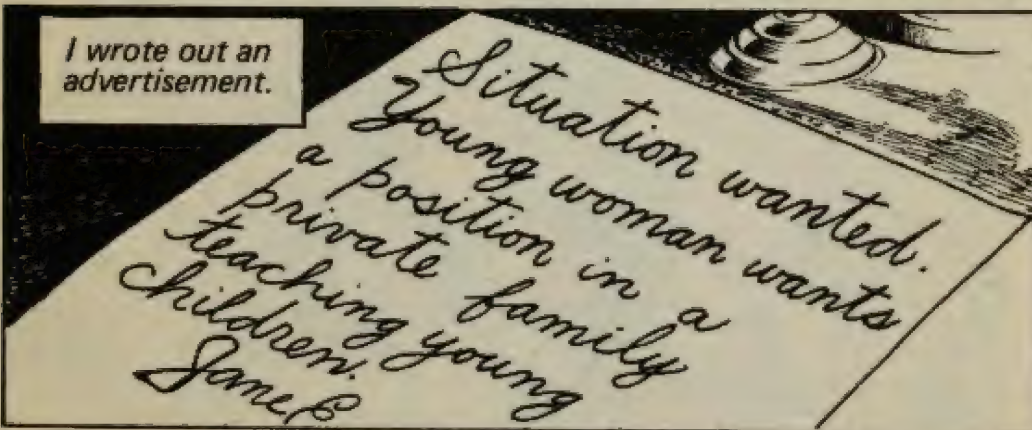 I wrote out an
advertisement.
Situation wanted.
Young woman wants
a position in a
private family
teaching young
children.
Jane E